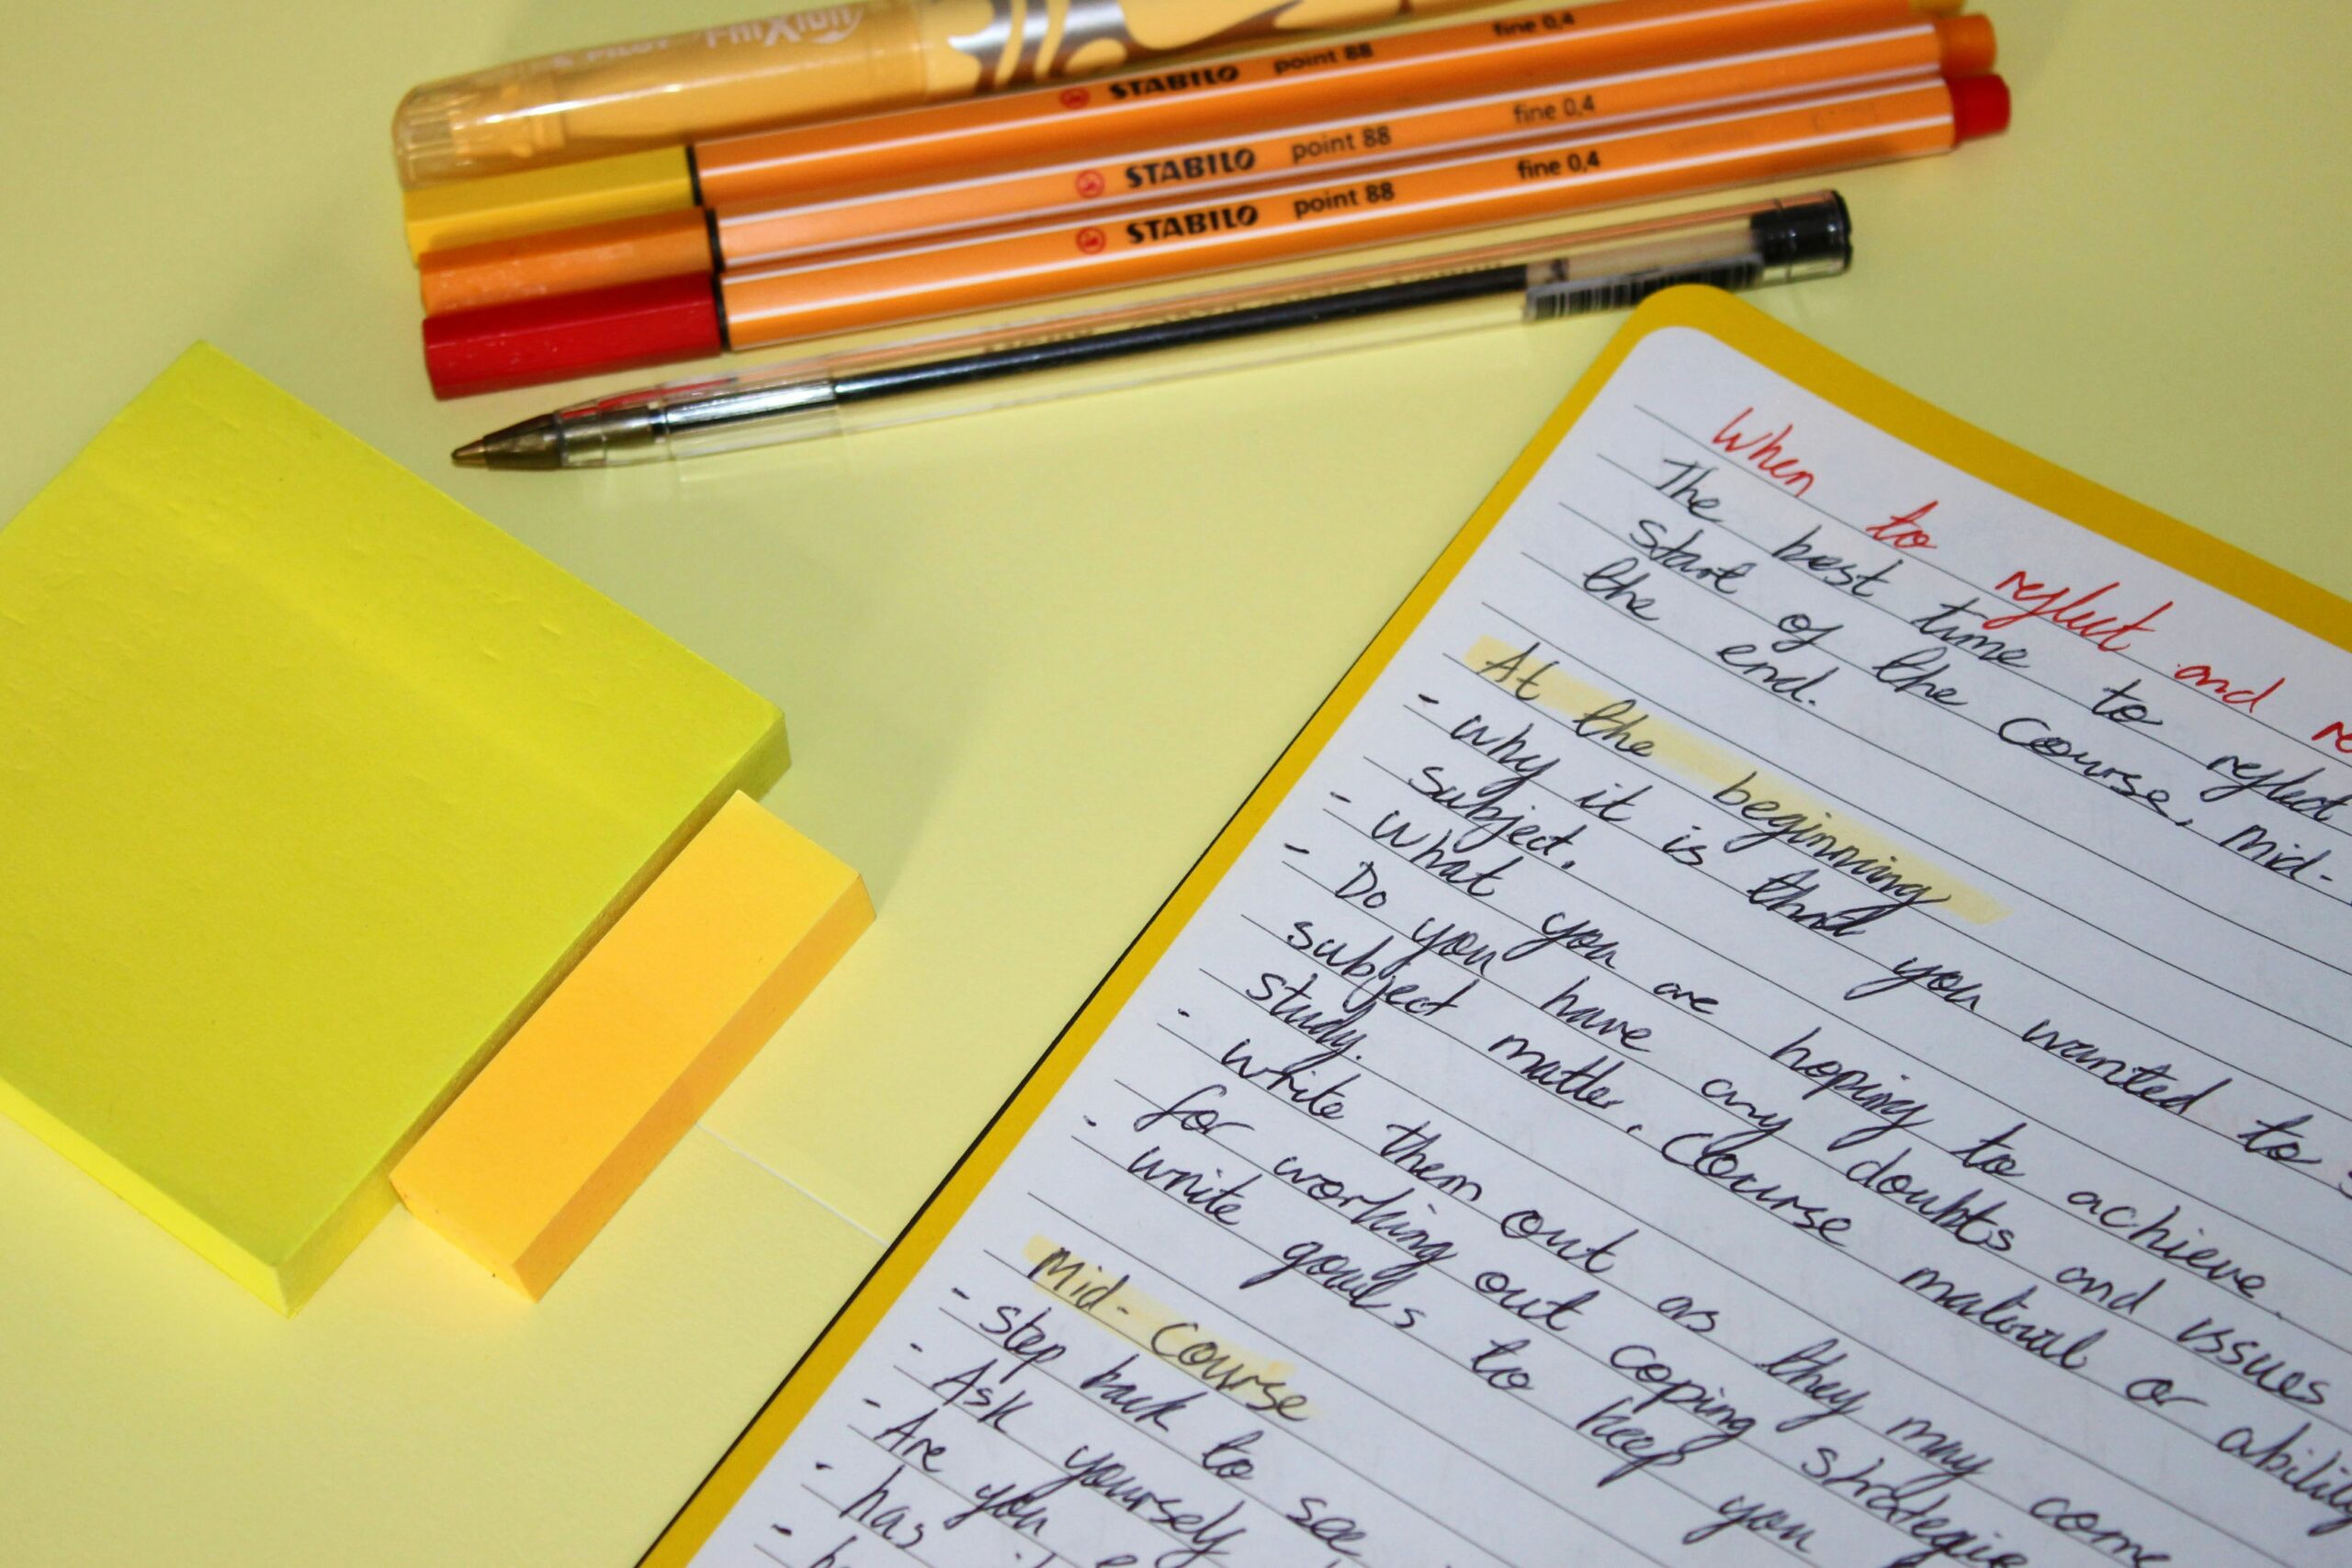 PILOT FriXion
STABILO point 88 fine 0,4
STABILO point 88 fine 0,4
STABILO point 88 fine 0,4
When to reflect and
The best time to reflect
start of the course, mid-
the end.
At the beginning
- why it is that you wanted to
subject.
- what you are hoping to achieve.
- Do you have any doubts and issues
subject matter, course material or ability
study.
- write them out as they may come
for working out coping strategies
- write goals to keep you
Mid-Course
- step back to see
- Ask yourself
- Are you
- has